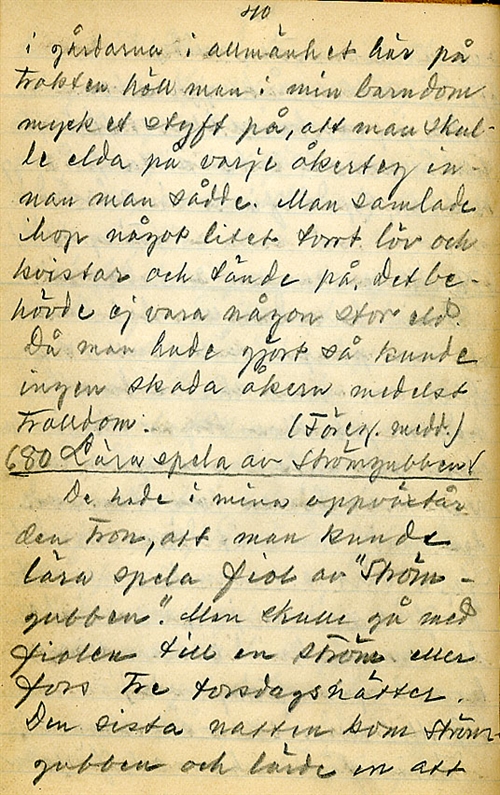 40
i gårdarna i allmänhet här på
trakten höll man i min barndom
mycket styft på, att man skul-
le elda på varje åkerteg in-
nan man sådde. Man samlade
ihop något litet torrt löv och
kvistar och tände på, det be-
hövde ej vara någon stor eld.
Då man hade gjort så kunde
ingen skada åkern medelst
trolldom. (Föreg. medd.)
680 Lära spela av Strömgubben.
De hade i mina uppväxtår
den tron, att man kunde
lära spela fiol av "Ström-
gubben". Man skulle gå med
fiolen till en ström eller
fors tre torsdagsnätter.
Den sista natten kom Ström-
gubben och lärde en att